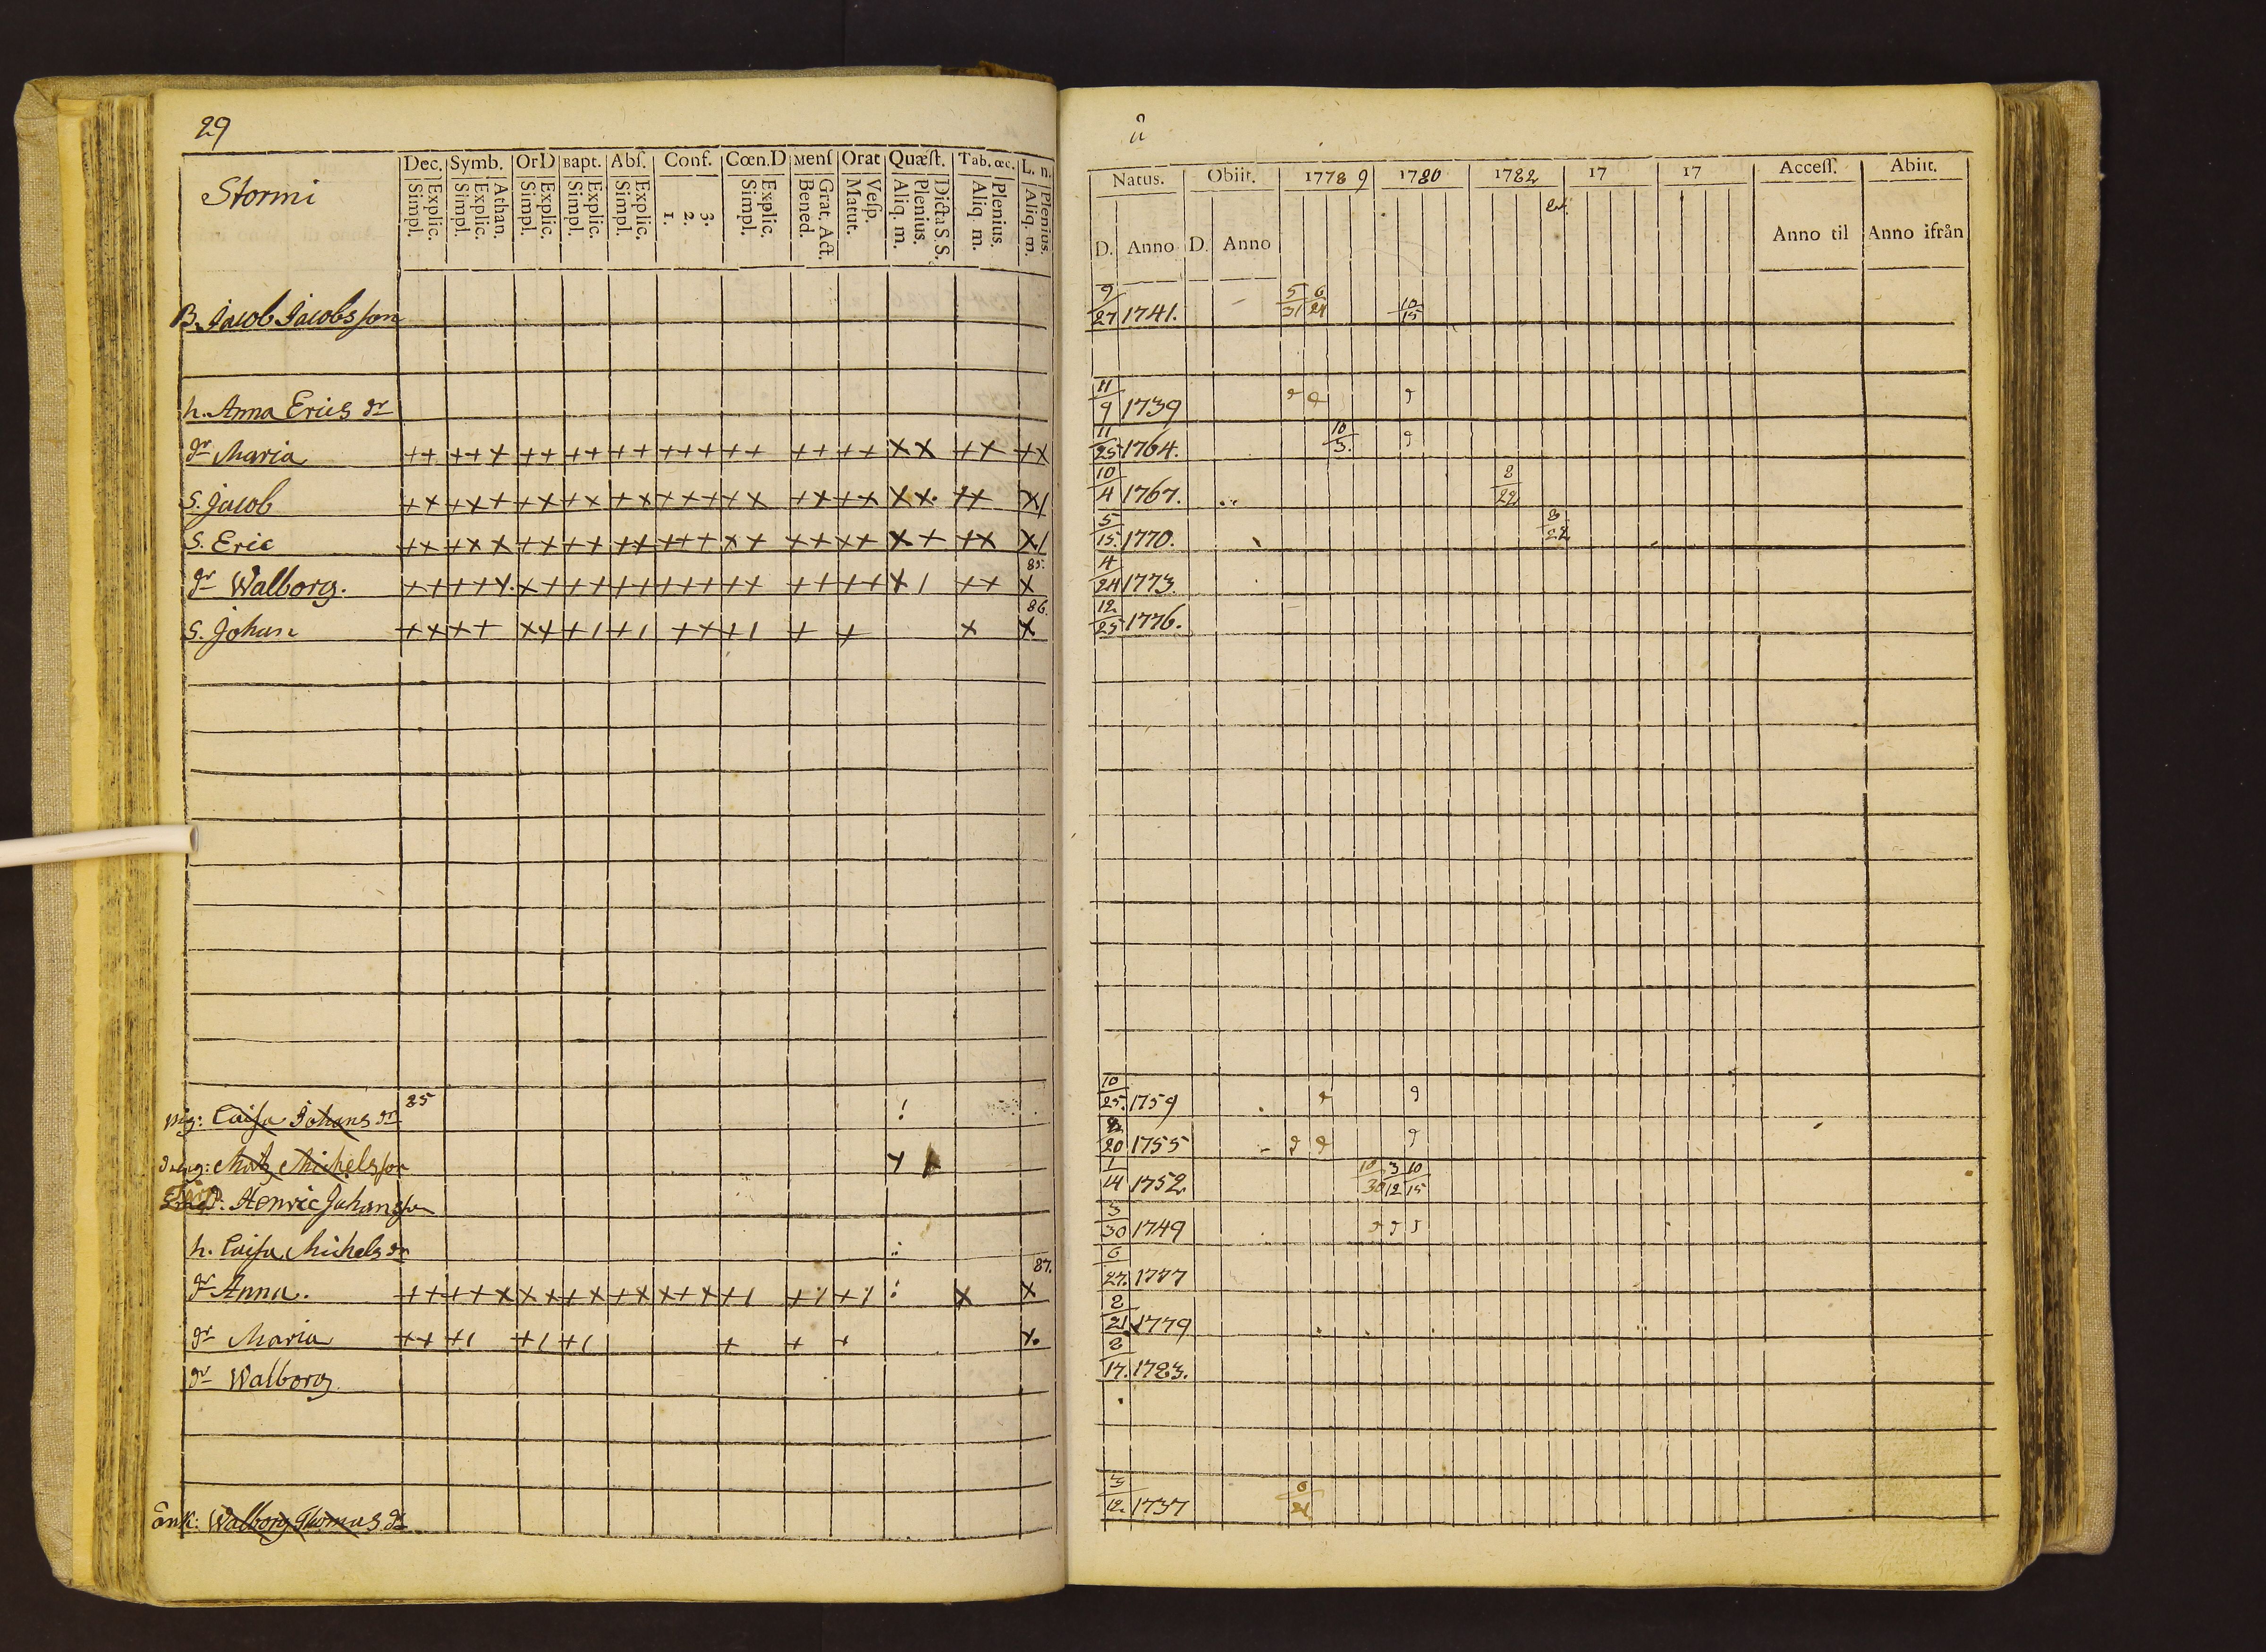 29
Stormi
Dec. Symb. OrD Bapt. Abſ. Conf. Cœn.D Menſ Orat Quæſt. Tab. œc. L. n.
Simpl. Explic. Simpl. Explic. Athan. Simpl. Explic. Simpl. Explic. Simpl. Explic. 1. 2. 3. Simpl. Explic. Bened. Grat. Act. Matut. Veſp. Aliq. m. Plenius. Dicta S. S. Aliq. m. Plenius. Aliq. m. Plenius.
Natus. Obiit. 1778 9 1780 1782 17 17 Acceſſ. Abiit.
D. Anno D. Anno Anno til Anno ifrån
B. Jacob Jacobsſon 9/27 1741. 5/31 6/21 10/15
h. Anna Erics dr 11/9 1739
dr Maria ++ +++ ++ ++ ++ +++ ++ ++ ++ ×× ++ +× 11/25 1764. 10/3.
S. Jacob ++ +++ ++ ++ ++ +++ ++ ++ ++ ×× ++ ×/ 10/4 1767. 8/22
S. Eric ++ +++ ++ ++ ++ +++ ++ ++ ++ ×+ ++ ×/ 5/15. 1770. 8/22
85.
dr Walborg. ++ +++ ++ ++ ++ +++ ++ ++ ++ ×/ ++ × 4/24 1773.
86.
S. Johan ++ ++ ++ +/ +/ ++ +/ + + × × 12/25 1776.
85
pig: Caisa Johans dr 10/25. 1759
dräng: Mats Michelsſon 20 1755
Henric Johansſon 1/14 1752 10/30 3/12 10/15
h. Caisa Michels dr 3/30 1749
87.
dr Anna. ++ +++ ++ ++ ++ +++ +/ +/ +/ × × 6/27. 1777
dr Maria ++ +/ +/ +/ + + + ×. 2/21 1779
dr Walborg 2/17. 1783.
Enk: Walborg Thomas dr 3/12. 1737 6/21